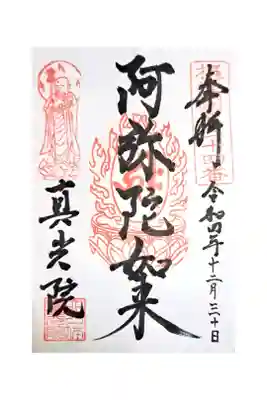 奉拝 令和四年十二月三十日
阿弥陀如来
真光院